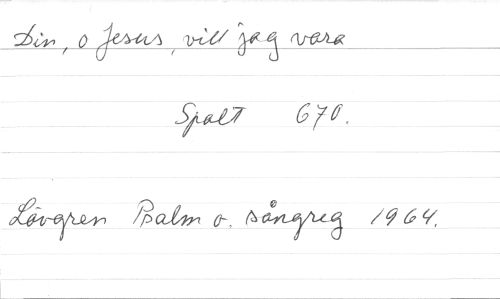 Din, o Jesus, vill jag vara
Spalt 670.
Lövgren Psalm o. sångreg 1964.